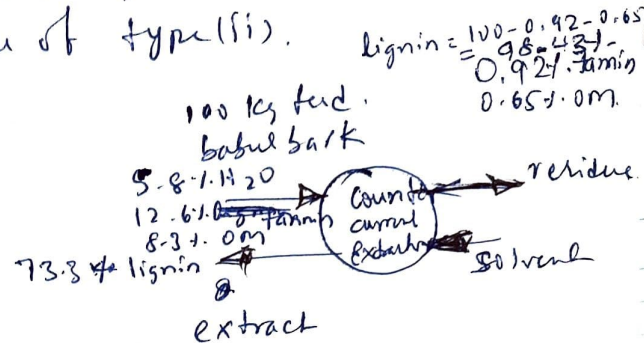 of type (ii).
lignin = 100-0.92-0.65
= 98.43%
0.92%. Tannin
0.65%. OM.
100 kg feed.
babul bark
5.8%. H20
12.6%. Tannin
8.3%. OM
73.3% lignin
Counter
current
extractor
residue
solvent
extract